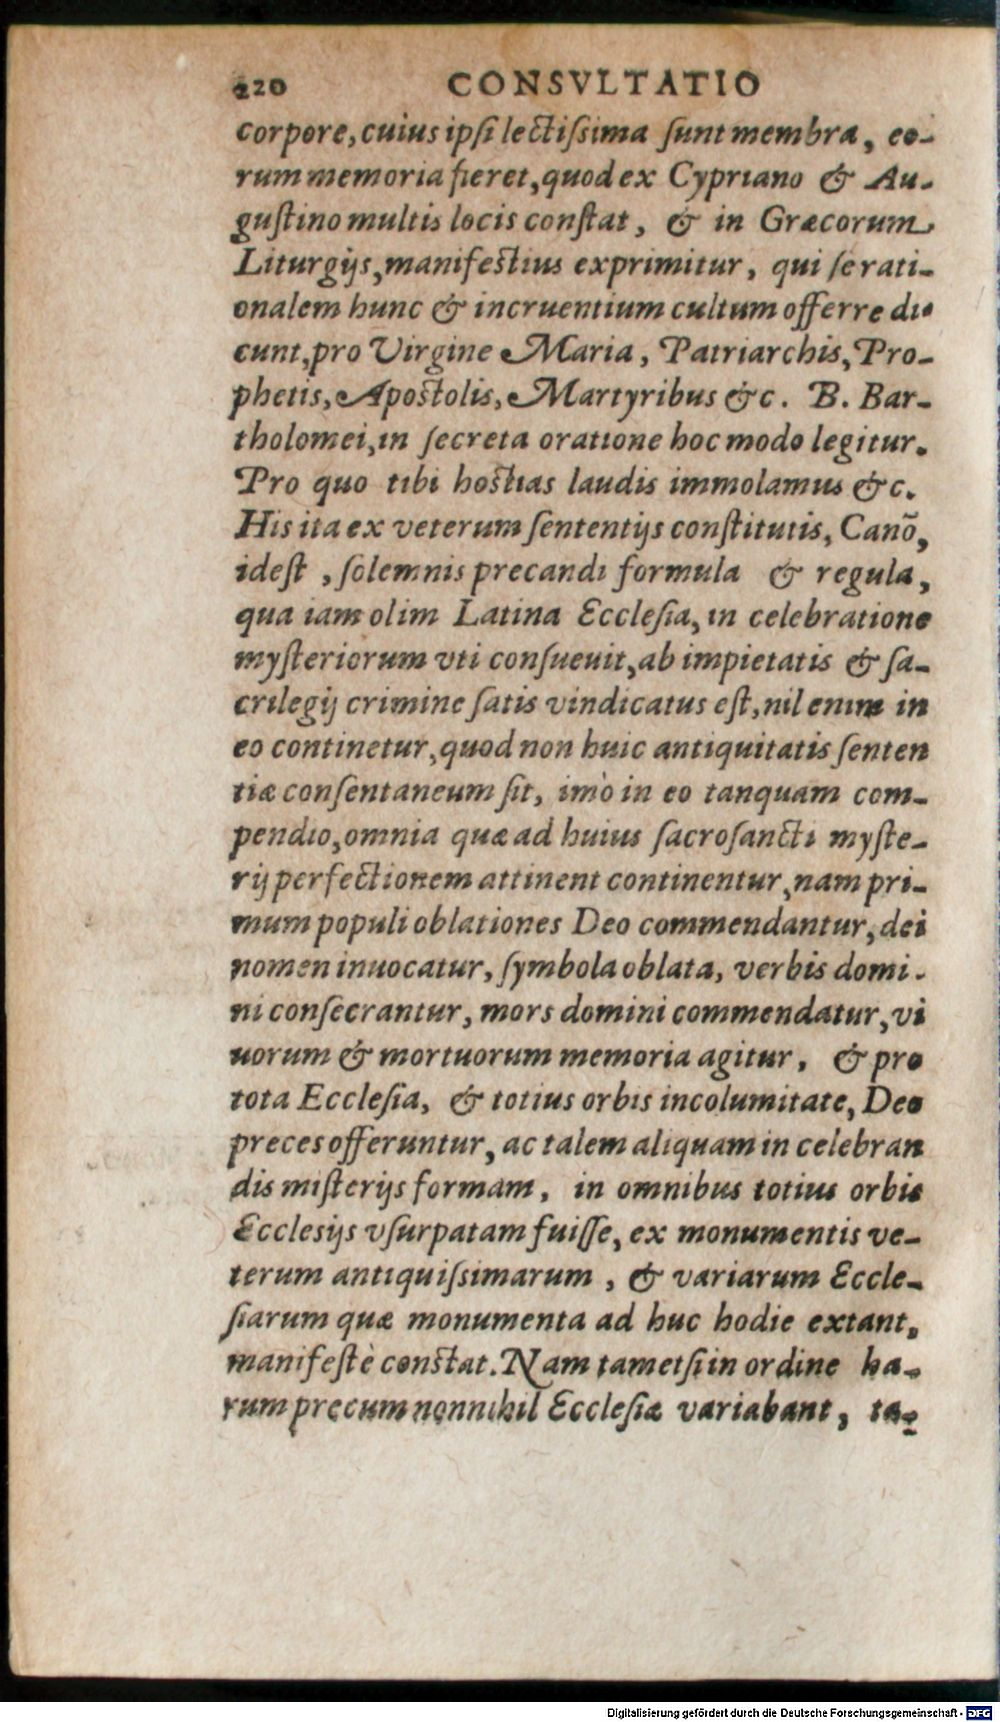 220 CONSVLTATIO
corpore, cuius ipsi lectissima sunt membra, eo-
rum memoria fieret, quod ex Cypriano & Au-
gustino multis locis constat, & in Græcorum
Liturgijs, manifestius exprimitur, qui se rati-
onalem hunc & incruentium cultum offerre di-
cunt, pro Virgine Maria, Patriarchis, Pro-
phetis, Apostolis, Martyribus &c. B. Bar-
tholomei, in secreta oratione hoc modo legitur.
Pro quo tibi hostias laudis immolamus &c.
His ita ex veterum sententijs constitutis, Canõ,
idest, solemnis precandi formula & regula,
qua iam olim Latina Ecclesia, in celebratione
mysteriorum vti consueuit, ab impietatis & sa-
crilegij crimine satis vindicatus est, nil enim in
eo continetur, quod non huic antiquitatis senten
tiæ consentaneum sit, imò in eo tanquam com-
pendio, omnia quæ ad huius sacrosancti myste-
rij perfectionem attinent continentur, nam pri-
mum populi oblationes Deo commendantur, dei
nomen inuocatur, symbola oblata, verbis domi-
ni consecrantur, mors domini commendatur, vi
uorum & mortuorum memoria agitur, & pro
tota Ecclesia, & totius orbis incolumitate, Deo
preces offeruntur, ac talem aliquam in celebran
dis misterijs formam, in omnibus totius orbis
Ecclesijs vsurpatam fuisse, ex monumentis ve-
terum antiquissimarum, & variarum Eccle-
siarum quæ monumenta ad huc hodie extant,
manifestè constat. Nam tametsi in ordine ha-
rum precum nonnihil Ecclesiæ variabant, ta-
Digitalisierung gefördert durch die Deutsche Forschungsgemeinschaft - DFG